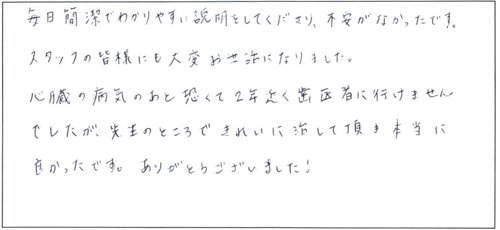 毎日簡潔でわかりやすい説明をしてくださり、不安がなかったです。
スタッフの皆様にも大変お世話になりました。
心臓の病気のあと恐くて2年近く歯医者に行けません
でしたが、先生のところできれいに治して頂き本当に
良かったです。ありがとうございました!